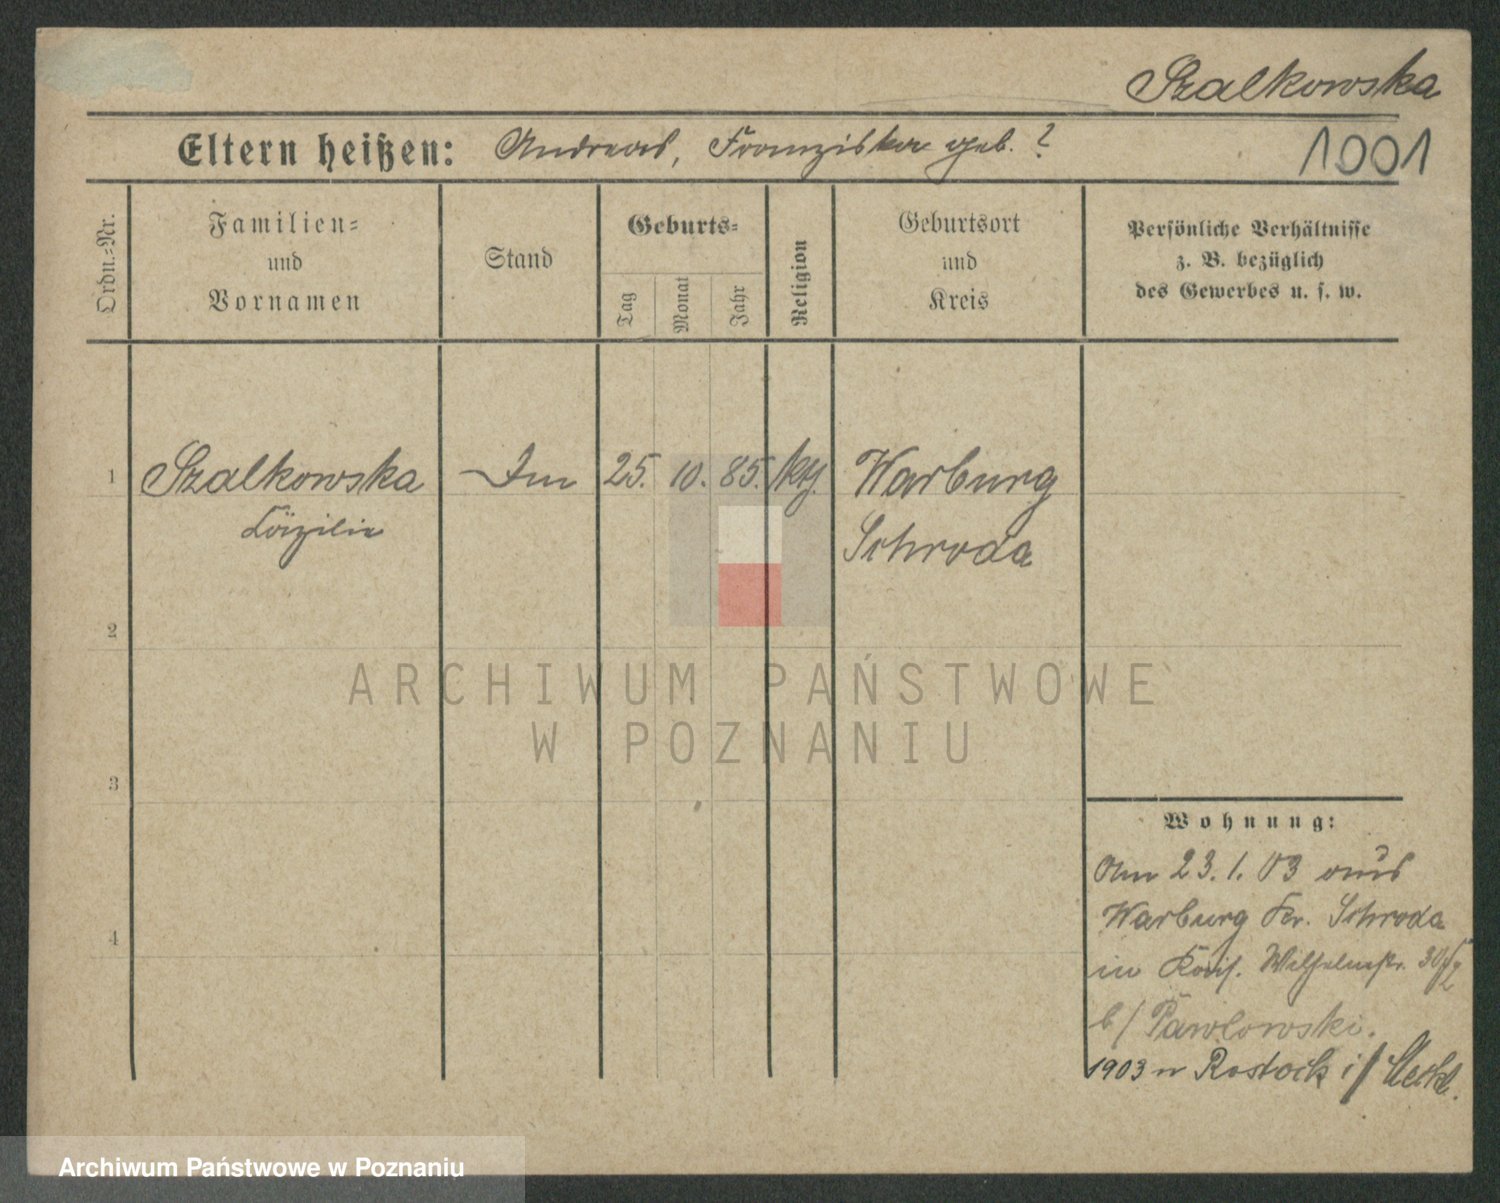 Szalkowska
Eltern heißen: Andreas, Franziska geb. ?
1001
Ordn.-Nr.
Familien-
und
Vornamen
Stand
Geburts-
Tag
Monat
Jahr
Religion
Geburtsort
und
Kreis
Persönliche Verhältnisse
z. B. bezüglich
des Gewerbes u. s. w.
1 Szalkowska 25. 10. 85. Warburg
Cäzilie Schroda
2
ARCHIWUM PAŃSTWOWE
W POZNANIU
3
Wohnung:
Am 23.1.03 aus
4 Warburg Kr. Schroda
in Wilhelmstr. 30
b/ Pawlowski.
1903 n Rostock i/ Meckl.
Archiwum Państwowe w Poznaniu